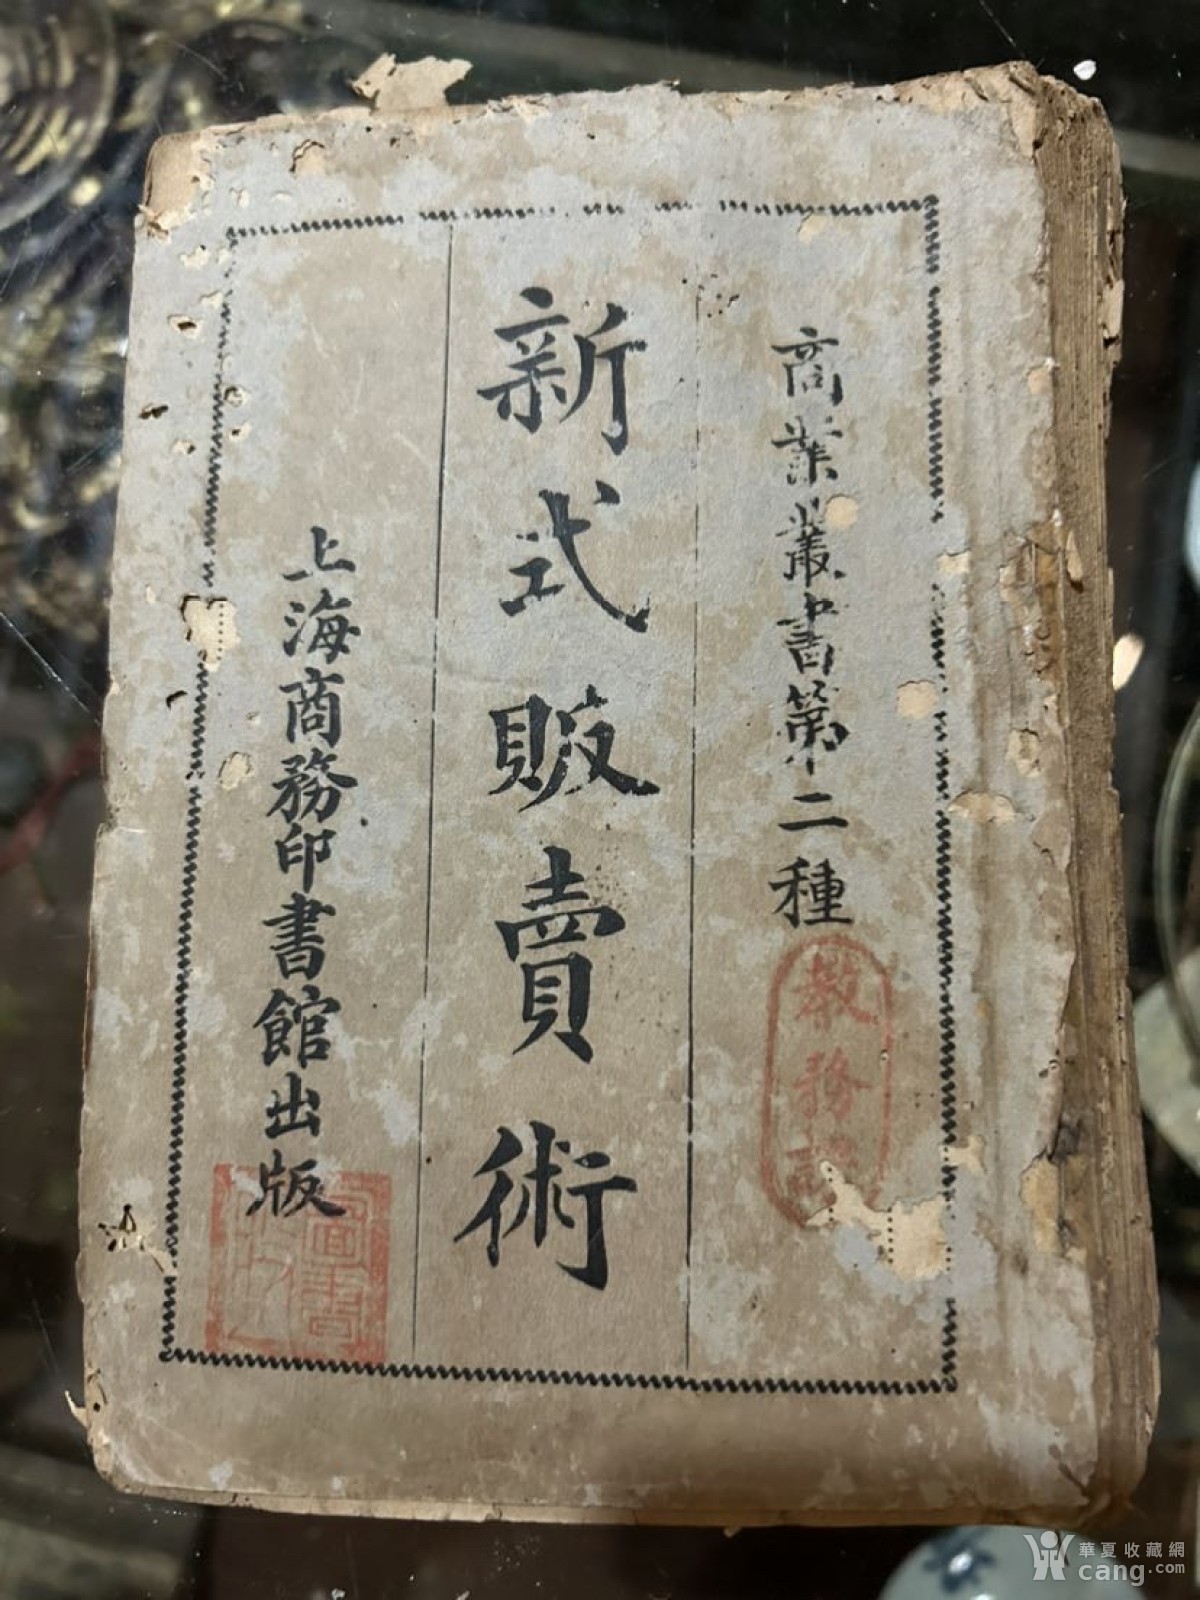 商業叢書第二種
新式販賣術
上海商務印書館出版
教務
圖書
華夏收藏網
cang.com